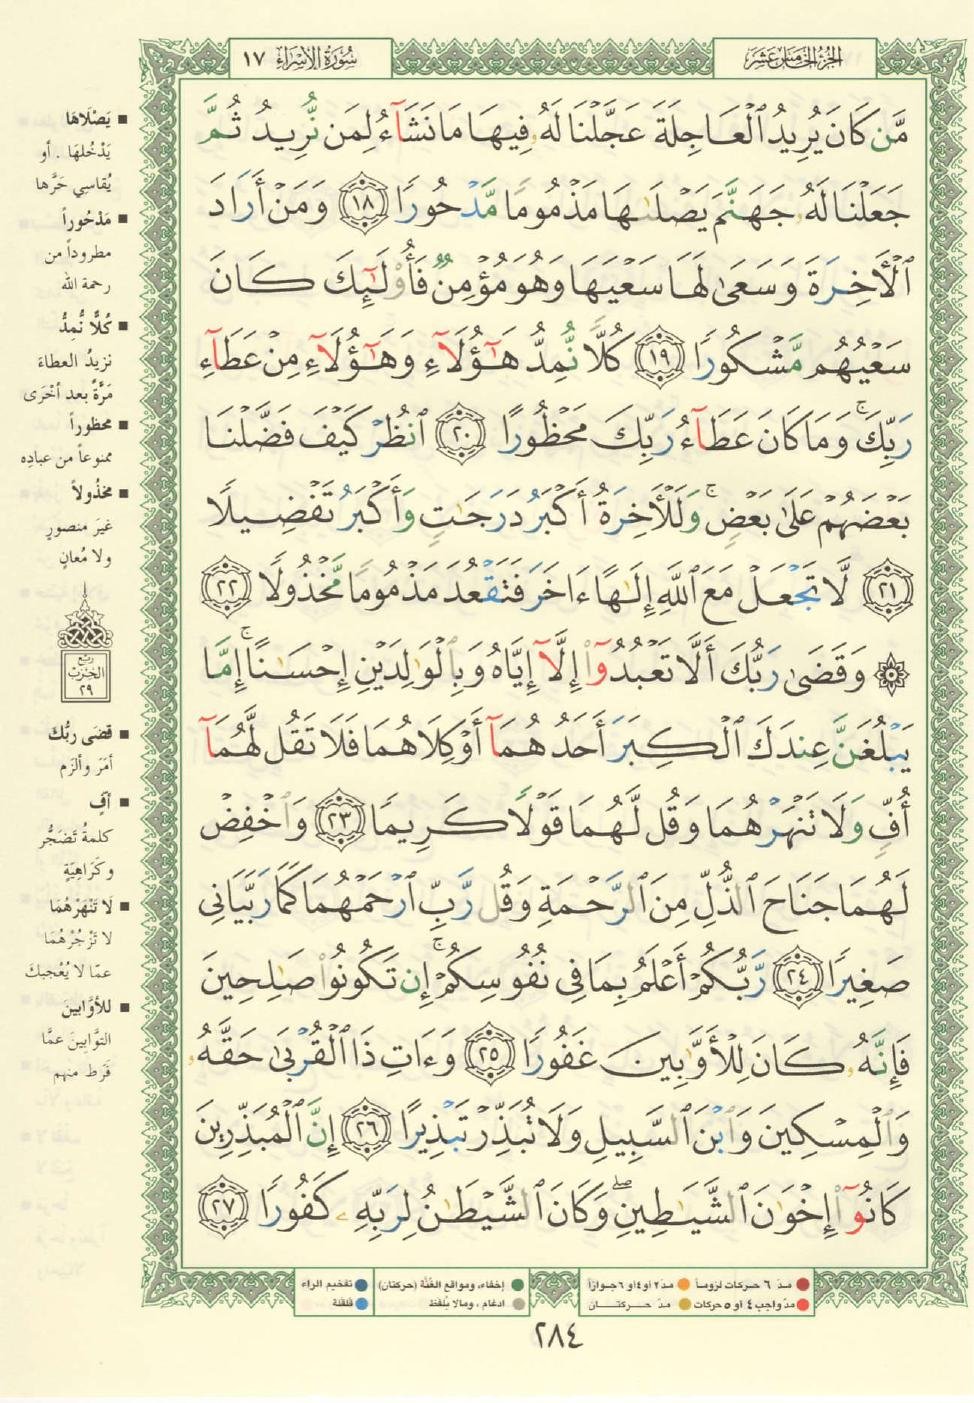 الجزء الخامس عشر
سورة الإسراء ١٧
مَّن كَانَ يُرِيدُ ٱلْعَاجِلَةَ عَجَّلْنَا لَهُۥ فِيهَا مَا نَشَآءُ لِمَن نُّرِيدُ ثُمَّ
جَعَلْنَا لَهُۥ جَهَنَّمَ يَصْلَىٰهَا مَذْمُومًا مَّدْحُورًا ١٨ وَمَنْ أَرَادَ
ٱلْأَخِرَةَ وَسَعَىٰ لَهَا سَعْيَهَا وَهُوَ مُؤْمِنٌ فَأُو۟لَٰٓئِكَ كَانَ
سَعْيُهُم مَّشْكُورًا ١٩ كُلًّا نُّمِدُّ هَٰٓؤُلَآءِ وَهَٰٓؤُلَآءِ مِنْ عَطَآءِ
رَبِّكَ ۚ وَمَا كَانَ عَطَآءُ رَبِّكَ مَحْظُورًا ٢٠ ٱنظُرْ كَيْفَ فَضَّلْنَا
بَعْضَهُمْ عَلَىٰ بَعْضٍ ۚ وَلَلْأَخِرَةُ أَكْبَرُ دَرَجَٰتٍ وَأَكْبَرُ تَفْضِيلًا
٢١ لَّا تَجْعَلْ مَعَ ٱللَّهِ إِلَٰهًا ءَاخَرَ فَتَقْعُدَ مَذْمُومًا مَّخْذُولًا ٢٢
۞ وَقَضَىٰ رَبُّكَ أَلَّا تَعْبُدُوٓا۟ إِلَّآ إِيَّاهُ وَبِٱلْوَٰلِدَيْنِ إِحْسَٰنًا ۚ إِمَّا
يَبْلُغَنَّ عِندَكَ ٱلْكِبَرَ أَحَدُهُمَآ أَوْ كِلَاهُمَا فَلَا تَقُل لَّهُمَآ
أُفٍّ وَلَا تَنْهَرْهُمَا وَقُل لَّهُمَا قَوْلًا كَرِيمًا ٢٣ وَٱخْفِضْ
لَهُمَا جَنَاحَ ٱلذُّلِّ مِنَ ٱلرَّحْمَةِ وَقُل رَّبِّ ٱرْحَمْهُمَا كَمَا رَبَّيَانِى
صَغِيرًا ٢٤ رَّبُّكُمْ أَعْلَمُ بِمَا فِى نُفُوسِكُمْ ۚ إِن تَكُونُوا۟ صَٰلِحِينَ
فَإِنَّهُۥ كَانَ لِلْأَوَّٰبِينَ غَفُورًا ٢٥ وَءَاتِ ذَا ٱلْقُرْبَىٰ حَقَّهُۥ
وَٱلْمِسْكِينَ وَٱبْنَ ٱلسَّبِيلِ وَلَا تُبَذِّرْ تَبْذِيرًا ٢٦ إِنَّ ٱلْمُبَذِّرِينَ
كَانُوٓا۟ إِخْوَٰنَ ٱلشَّيَٰطِينِ ۖ وَكَانَ ٱلشَّيْطَٰنُ لِرَبِّهِۦ كَفُورًا ٢٧
■ يَصْلَاهَا
يَدْخُلهَا . أو
يُقاسِي حَرَّها
■ مَدْحُوراً
مطروداً من
رحمة الله
■ كُلًّا نُّمِدُّ
نزيدُ العطاءَ
مَرَّةً بعد أُخْرَى
■ محظوراً
ممنوعاً من عبادِه
■ مخذُولاً
غيرَ منصورٍ
ولا مُعانٍ
ربع
الحزب
٢٩
■ قَضَى ربُّك
أمَرَ وألزَم
■ أفٍّ
كلمةُ تَضجُّر
وكَرَاهِيَةٍ
■ لَا تَنْهَرْهُمَا
لا تَزْجُرْهُمَا
عمّا لا يُعْجبكَ
■ للأوَّابينَ
التوَّابينَ عمَّا
فَرَط منهم
مدّ ٦ حركات لزوماً
مدّ ٢ أو ٤ أو ٦ جوازاً
إخفاء، ومواقع الغُنَّة (حركتان)
تفخيم الراء
مدّ واجب ٤ أو ٥ حركات
مدّ حــركتــان
ادغام، ومالا يُلفَظ
قلقلة
٢٨٤